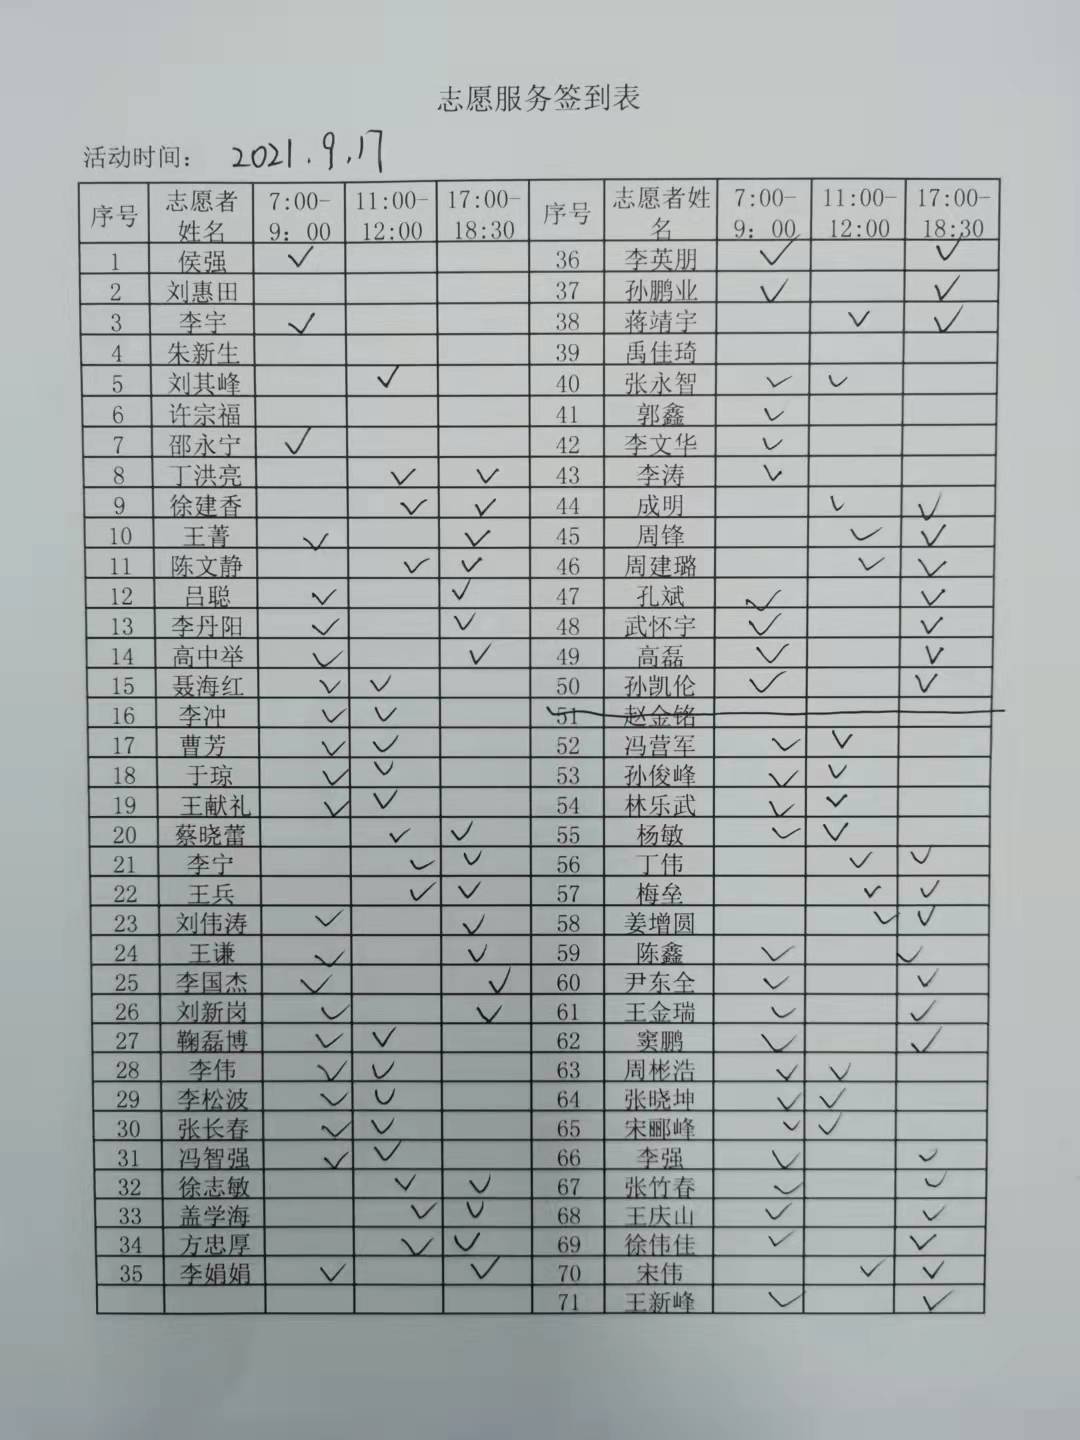 志愿服务签到表
活动时间： 2021.9.17
序号 志愿者姓名 7:00-9：00 11:00-12:00 17:00-18:30 序号 志愿者姓名 7:00-9：00 11:00-12:00 17:00-18:30
1 侯强 ✓ 36 李英朋 ✓ ✓
2 刘惠田 37 孙鹏业 ✓ ✓
3 李宇 ✓ 38 蒋靖宇 ✓ ✓
4 朱新生 39 禹佳琦
5 刘其峰 ✓ 40 张永智 ✓ ✓
6 许宗福 41 郭鑫 ✓
7 邵永宁 ✓ 42 李文华 ✓
8 丁洪亮 ✓ ✓ 43 李涛 ✓
9 徐建香 ✓ ✓ 44 成明 ✓ ✓
10 王菁 ✓ ✓ 45 周锋 ✓ ✓
11 陈文静 ✓ ✓ 46 周建璐 ✓ ✓
12 吕聪 ✓ ✓ 47 孔斌 ✓ ✓
13 李丹阳 ✓ ✓ 48 武怀宇 ✓ ✓
14 高中举 ✓ ✓ 49 高磊 ✓ ✓
15 聂海红 ✓ ✓ 50 孙凯伦 ✓ ✓
16 李冲 ✓ ✓ 51 赵金铭
17 曹芳 ✓ ✓ 52 冯营军 ✓ ✓
18 于琼 ✓ ✓ 53 孙俊峰 ✓ ✓
19 王献礼 ✓ ✓ 54 林乐武 ✓ ✓
20 蔡晓蕾 ✓ ✓ 55 杨敏 ✓ ✓
21 李宁 ✓ ✓ 56 丁伟 ✓ ✓
22 王兵 ✓ ✓ 57 梅垒 ✓ ✓
23 刘伟涛 ✓ ✓ 58 姜增圆 ✓ ✓
24 王谦 ✓ ✓ 59 陈鑫 ✓ ✓
25 李国杰 ✓ ✓ 60 尹东全 ✓ ✓
26 刘新岗 ✓ ✓ 61 王金瑞 ✓ ✓
27 鞠磊博 ✓ ✓ 62 窦鹏 ✓ ✓
28 李伟 ✓ ✓ 63 周彬浩 ✓ ✓
29 李松波 ✓ ✓ 64 张晓坤 ✓ ✓
30 张长春 ✓ ✓ 65 宋郦峰 ✓ ✓
31 冯智强 ✓ ✓ 66 李强 ✓ ✓
32 徐志敏 ✓ ✓ 67 张竹春 ✓ ✓
33 盖学海 ✓ ✓ 68 王庆山 ✓ ✓
34 方忠厚 ✓ ✓ 69 徐伟佳 ✓ ✓
35 李娟娟 ✓ ✓ 70 宋伟 ✓ ✓
71 王新峰 ✓ ✓